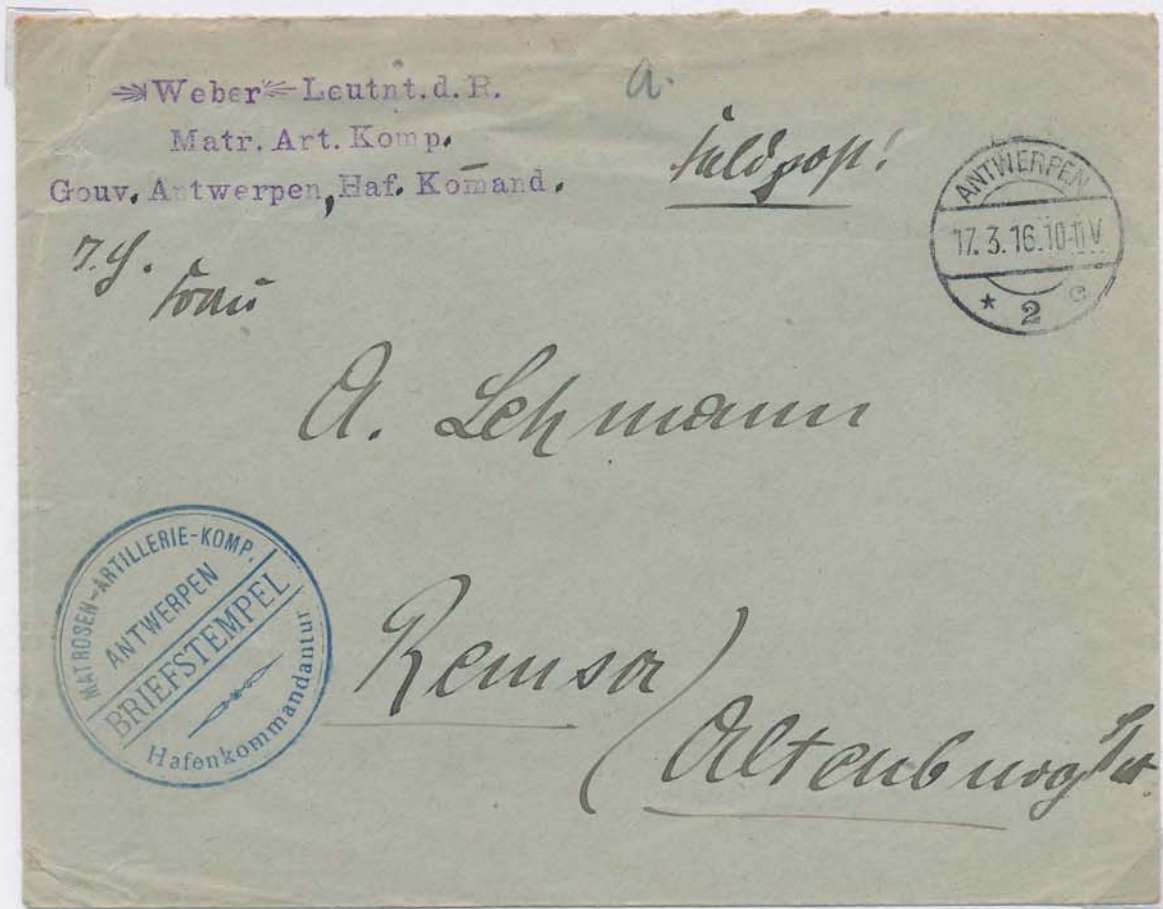 Weber Leutnt. d. R.
Matr. Art. Komp.
Gouv. Antwerpen, Haf. Kom̄and.
a.
Feldpost!
ANTWERPEN
17. 3. 16. 10-11 V
* 2 c
Frau
A. Lehmann
Remsa
Altenburg
MATROSEN-ARTILLERIE-KOMP.
ANTWERPEN
BRIEFSTEMPEL
Hafenkommandantur